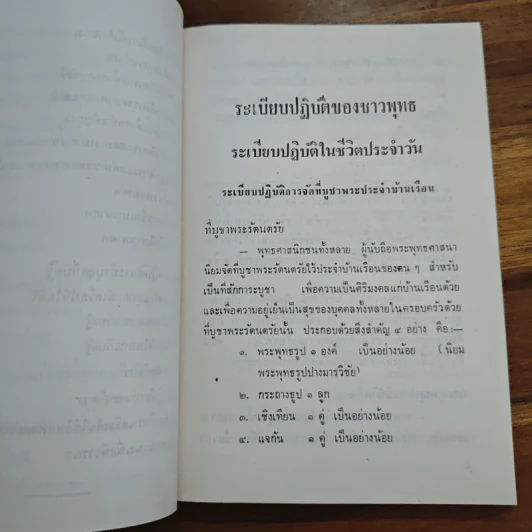 ระเบียบปฏิบัติของชาวพุทธ
ระเบียบปฏิบัติในชีวิตประจำวัน
ระเบียบปฏิบัติการจัดที่บูชาพระประจำบ้านเรือน
ที่บูชาพระรัตนตรัย
— พุทธศาสนิกชนทั้งหลาย ผู้นับถือพระพุทธศาสนา
นิยมจัดที่บูชาพระรัตนตรัยไว้ประจำบ้านเรือนของตน ๆ สำหรับ
เป็นที่สักการะบูชา เพื่อความเป็นศิริมงคลแก่บ้านเรือนด้วย
และเพื่อความอยู่เย็นเป็นสุขของบุคคลทั้งหลายในครอบครัวด้วย
ที่บูชาพระรัตนตรัยนั้น ประกอบด้วยสิ่งสำคัญ ๔ อย่าง คือ:—
๑. พระพุทธรูป ๑ องค์ เป็นอย่างน้อย (นิยม
พระพุทธรูปปางมารวิชัย)
๒. กระถางธูป ๑ ลูก
๓. เชิงเทียน ๑ คู่ เป็นอย่างน้อย
๔. แจกัน ๑ คู่ เป็นอย่างน้อย